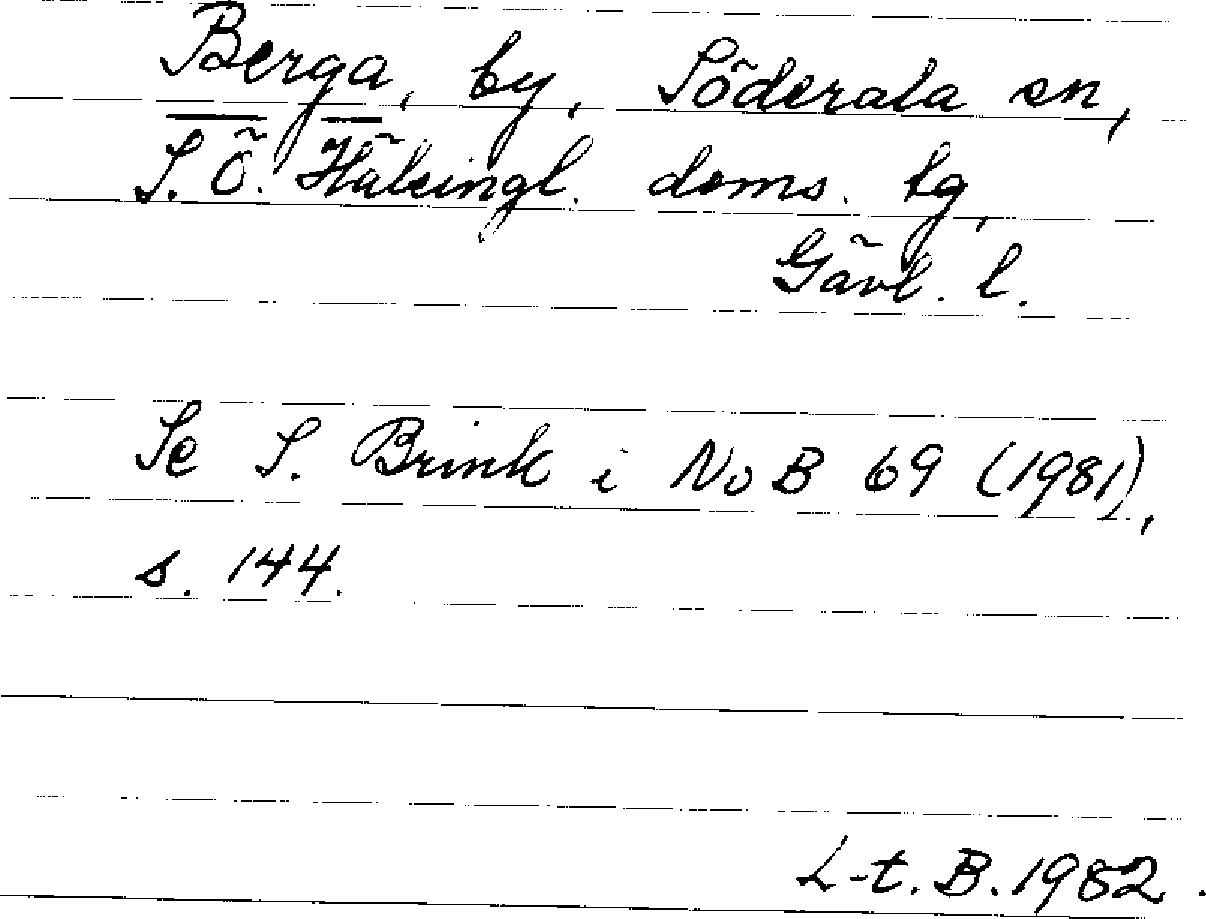 Berga, by, Söderala sn,
S. Ö. Hälsingl. doms. tg,
Gävl. l.
Se S. Brink i NoB 69 (1981),
s. 144.
L-t. B. 1982.